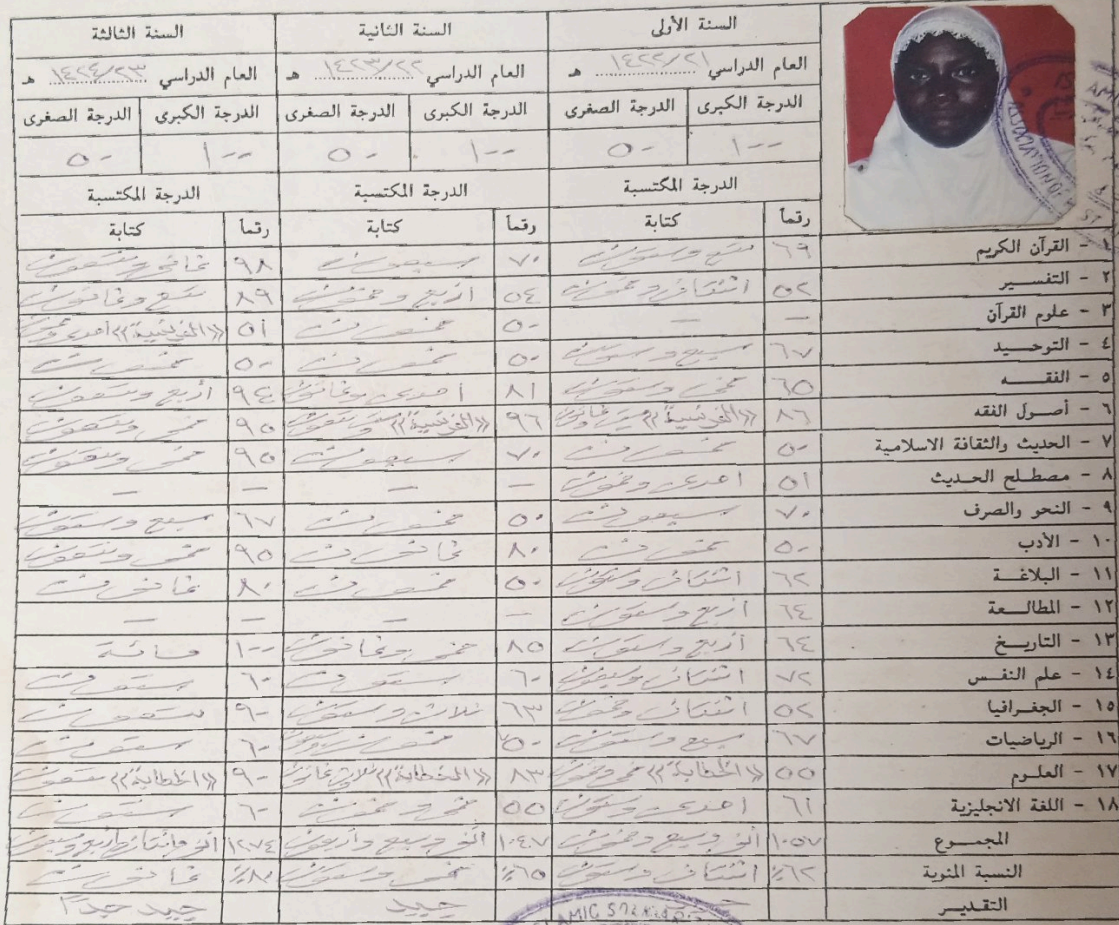 السنة الأولى السنة الثانية السنة الثالثة
العام الدراسي ١٤٢٢/٢١ هـ العام الدراسي ١٤٢٣/٢٢ هـ العام الدراسي ١٤٢٤/٢٣ هـ
الدرجة الكبرى الدرجة الصغرى الدرجة الكبرى الدرجة الصغرى الدرجة الكبرى الدرجة الصغرى
١٠٠ ٥٠ ١٠٠ ٥٠ ١٠٠ ٥٠
الدرجة المكتسبة الدرجة المكتسبة الدرجة المكتسبة
رقماً كتابة رقماً كتابة رقماً كتابة
القرآن الكريم ٦٩ تسع وستون ٧٠ سبعون ٩٨ ثماني وتسعون
٢ - التفسير ٥٢ اثنتان وخمسون ٥٤ أربع وخمسون ٨٩ تسع وثمانون
٣ - علوم القرآن — — ٥٠ خمسون ٥١ «الفرنسية»
٤ - التوحيد ٦٧ سبع وستون ٥٠ خمسون ٥٠ خمسون
٥ - الفقه ٦٥ خمس وستون ٨١ احدى وثمانون ٩٤ أربع وتسعون
٦ - أصول الفقه ٨٦ «الفرنسية» ست وثمانون ٩٦ «الفرنسية» ست وتسعون ٩٥ خمس وتسعون
٧ - الحديث والثقافة الاسلامية ٥٠ خمسون ٧٠ سبعون ٩٥ خمس وتسعون
٨ - مصطلح الحديث ٥١ احدى وخمسون — — — —
٩ - النحو والصرف ٧٠ سبعون ٥٠ خمسون ٦٧ سبع وستون
١٠ - الأدب ٥٠ خمسون ٨٠ ثمانون ٩٥ خمس وتسعون
١١ - البلاغة ٦٢ اثنتان وستون ٥٠ خمسون ٨٠ ثمانون
١٢ - المطالعة ٦٤ أربع وستون — — — —
١٣ - التاريخ ٦٤ أربع وستون ٨٥ خمس وثمانون ١٠٠ مائة
١٤ - علم النفس ٧٢ اثنتان وسبعون ٦٠ ستون ٦٠ ستون
١٥ - الجغرافيا ٥٢ اثنتان وخمسون ٦٣ ثلاث وستون ٩٠ تسعون
١٦ - الرياضيات ٦٧ سبع وستون ٥٠ خمسون ٦٠ ستون
١٧ - العلوم ٥٥ «الخطابة» خمس وخمسون ٨٣ «الخطابة» ثلاث وثمانون ٩٠ «الخطابة» تسعون
١٨ - اللغة الانجليزية ٦١ احدى وستون ٥٥ خمس وخمسون ٦٠ ستون
المجموع ١٠٥٧ ألف وسبع وخمسون ١٠٤٧ ألف وسبع وأربعون ١٢٧٤ ألف ومائتان وأربع وسبعون
النسبة المئوية ٦٢٪ اثنتان وستون ٦٥٪ خمس وستون ٨٠٪ ثمانون
التقدير جيد جيد جدا